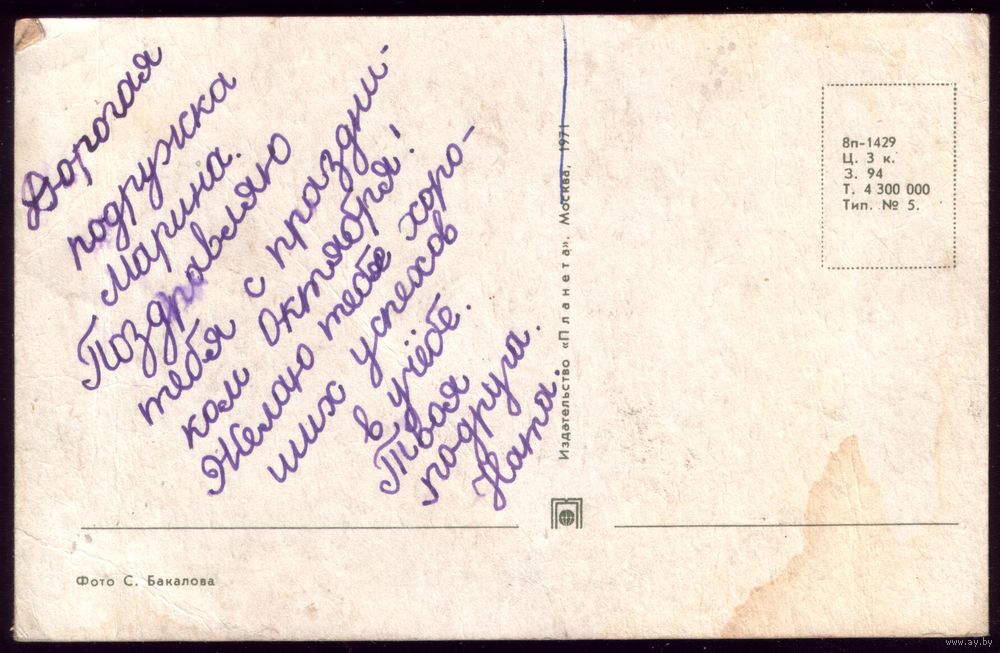 Дорогая
подружка
Марина.
Поздравляю
тебя с праздни-
ком Октября!
Желаю тебе хоро-
ших успехов
в учёбе.
Твоя
подруга.
Ната.
Издательство «Планета». Москва, 1971
8п-1429
Ц. 3 к.
З. 94
Т. 4 300 000
Тип. № 5.
Фото С. Бакалова
www.ay.by